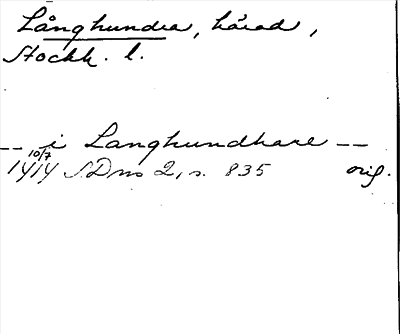 Långhundra, härad,
Stockh. l.
-- i Langhundhare --
10/7
1414 SDns 2, s. 835 orig.